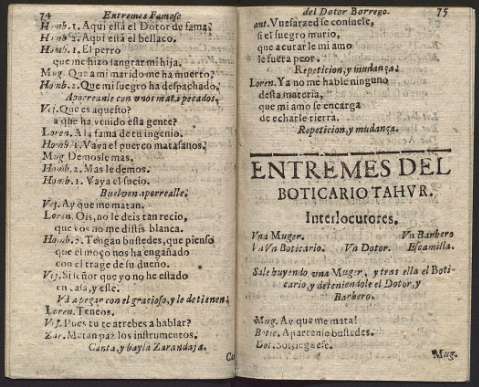 74 Entremes Famoso
Homb. 1. Aqui està el Dotor de fama?
Homb. 2. Aqui està el bellaco.
Homb. 1. El perro
que me hizo sangrar mi hija.
Mug. Que a mi marido me ha muerto?
Homb. 2. Que mi suegro ha despachado.
Aporreanle con unos matapecados,
Vej. Que es aquesto?
a que ha venido esta gente?
Loren. A la fama de tu ingenio.
Homb. 1. Vaya el puerco matasanos.
Mug. Demosle mas.
Homb. 2. Mas le demos.
Homb. 1. Vaya el sucio.
Buelven aporrealle.
Vej. Ay que me matan.
Loren. Ois, no le deis tan recio,
que vos no me distis blanca.
Homb. Tengan bustedes, que pienso
que el moço nos ha engañado
con el trage de su dueño.
Vej. Si señor que yo no he estado
en casa, y esse.
Va a pegar con el gracioso, y le detienen.
Loren. Teneos.
Vej. Pues tu te atrebes a hablar?
Zar. Matan paz los instrumentos.
Canta, y bayla Zarandaja.
del Dotor Borrego. 75
ant. Vuesarzed se consuele,
si el suegro murio,
que a curarle mi amo
le fuera peor.
Repeticion, y mudança.
Loren. Ya no me hable ninguno
desta materia,
que mi amo se encarga
de echarle tierra.
Repeticion, y mudança.
ENTREMES DEL
BOTICARIO TAHVR.
Interlocutores.
Vna Muger. Vn Barbero
Vn Boticario. Vn Dotor. Escamilla.
Sale huyendo vna Muger, y tras ella el Boti-
cario, y deteniendole el Dotor, y
Barbero.
Mug. Ay que me mata!
Botic. Apartense bustedes.
Dot. Sossieguese.
Mug.